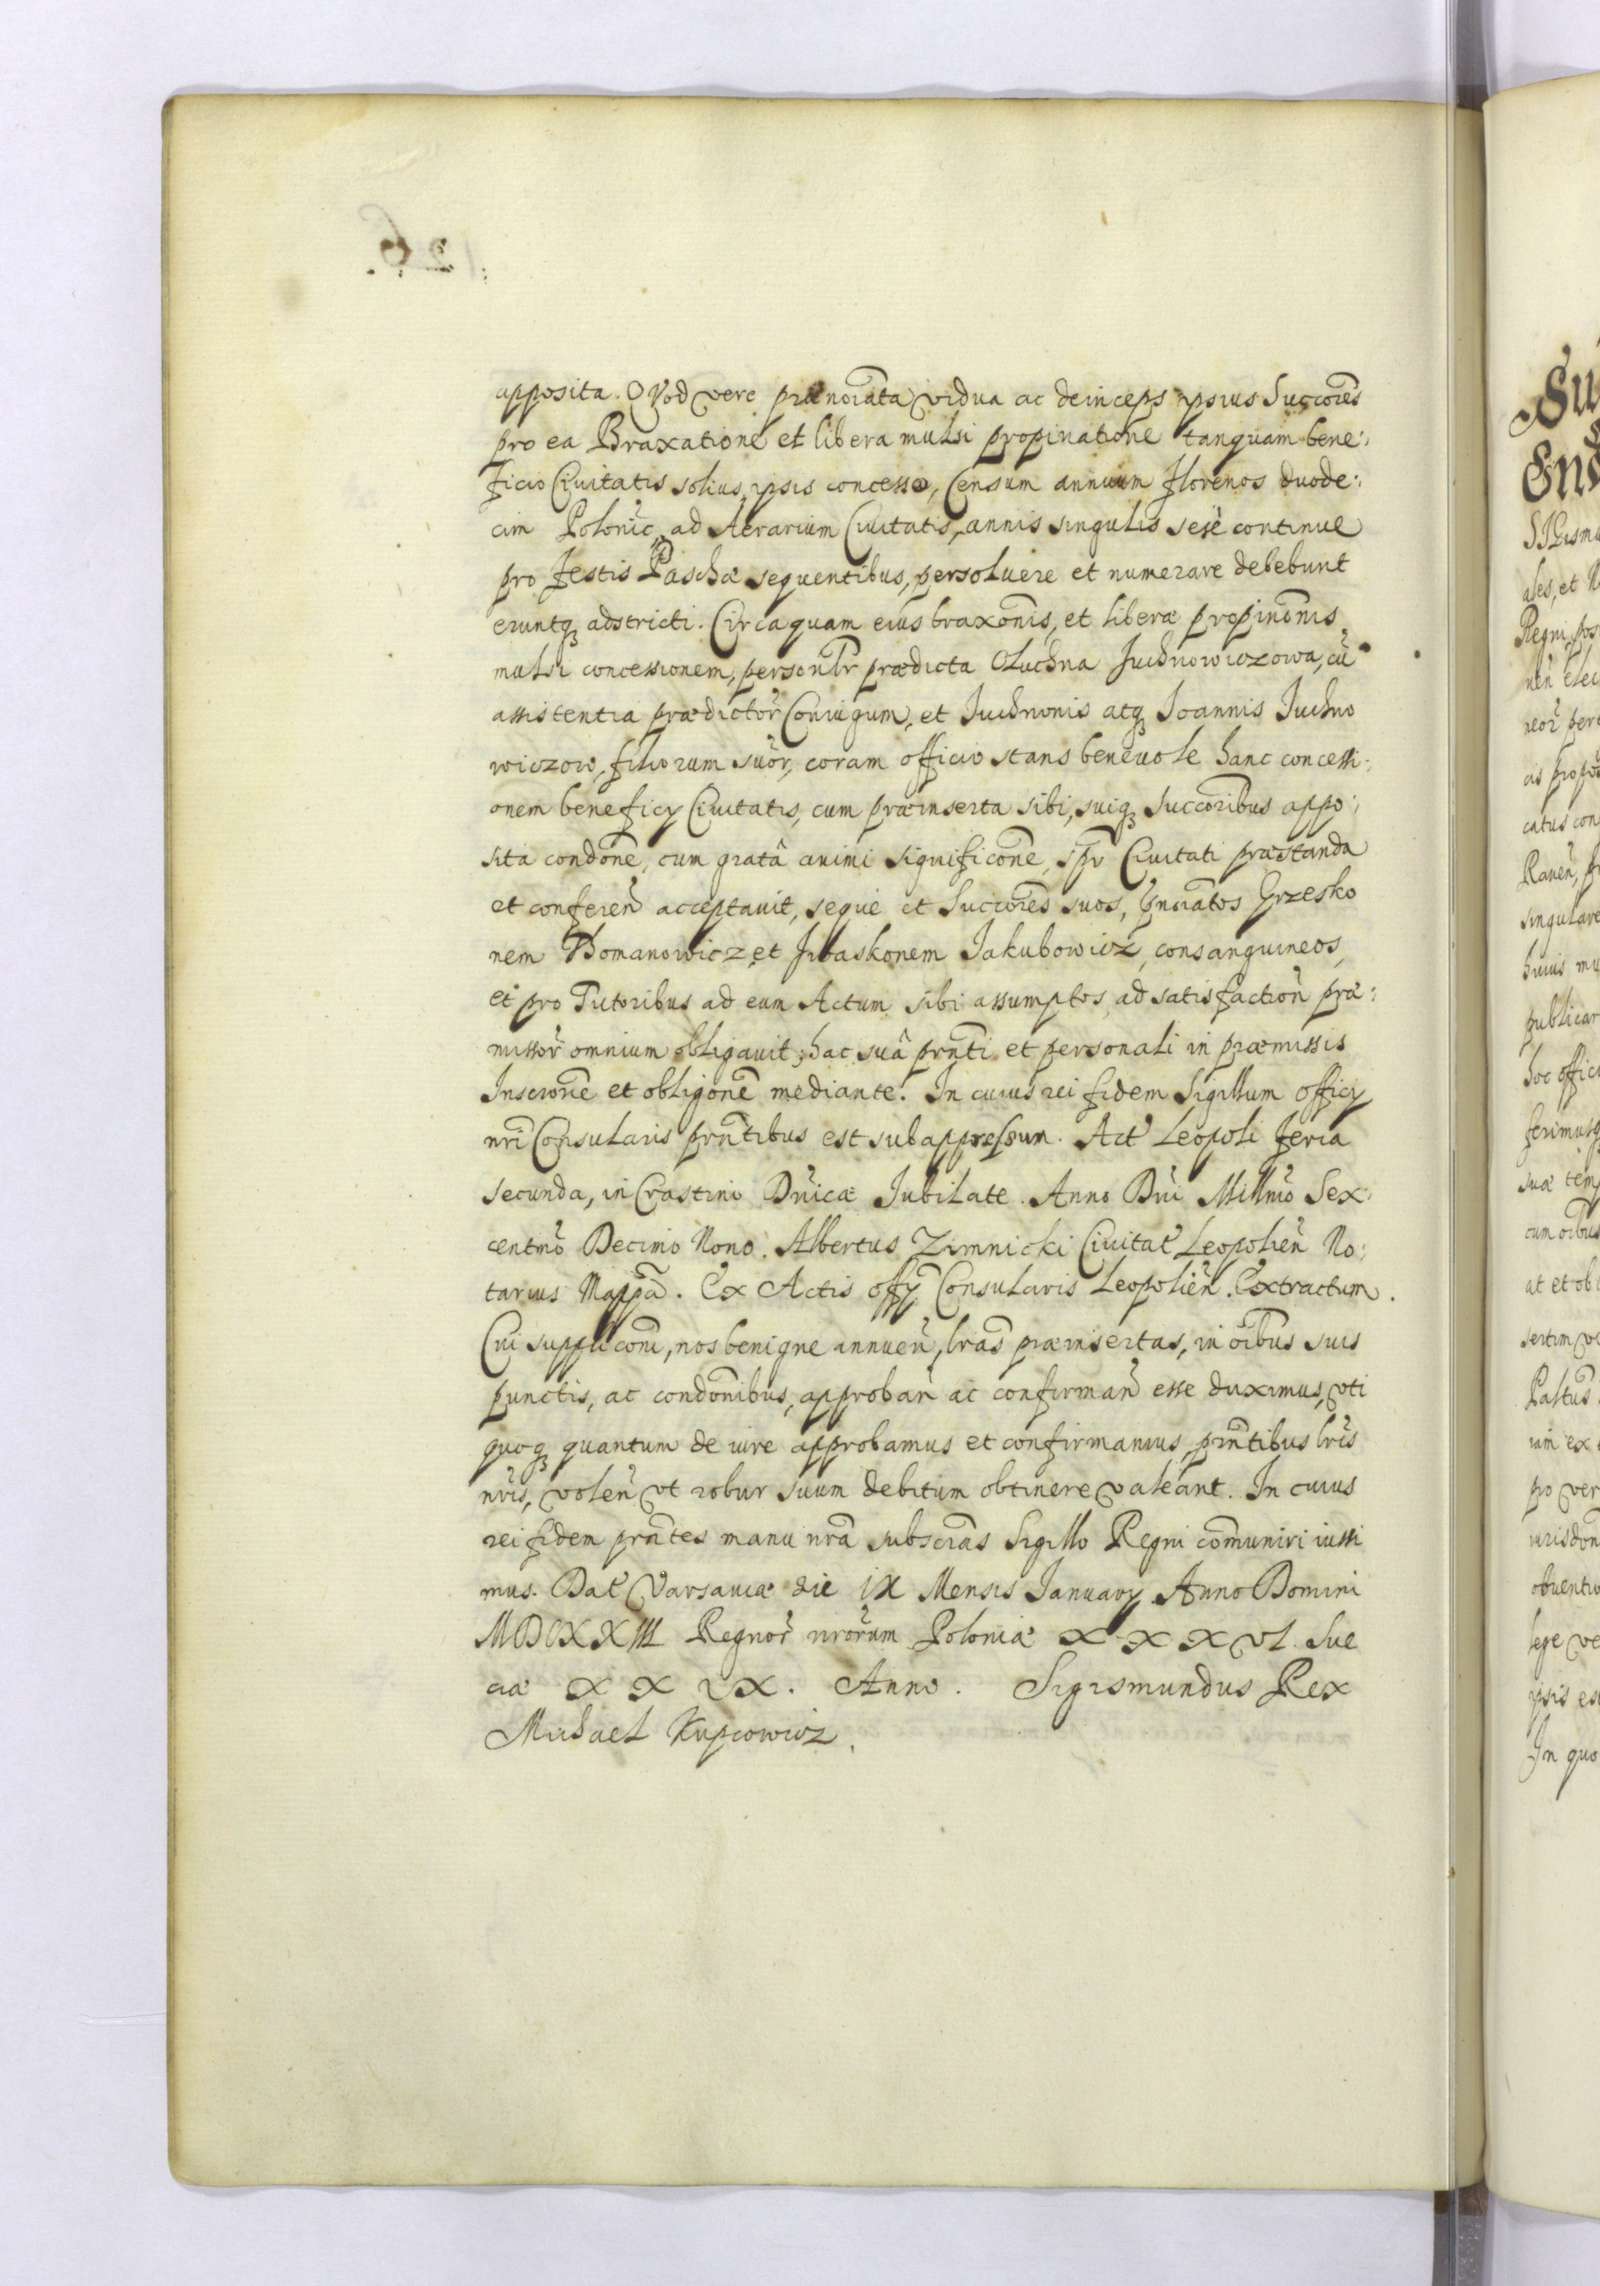 apposita. Qvod vero prænoiata vidua ac deinceps ipsius Succores
pro ea Braxatione et libera mulsi propinatione tanquam bene:
ficio Civitatis solius ipsis concesso, Censum annuum florenos duode:
cim Polonic. ad Aerarium Civitatis, annis singulis sese continue
pro festis Paschæ sequentibus, persoluere et numerare debebunt
eruntq adstricti. Circa quam eius braxonis, et liberæ propinonis
mulsi concessionem, personlr prædicta Oluchna Juchnowiczowa, cu
assistentia prædictor Coniugum, et Iuchnonis atq Ioannis Iuchno
wiczow, filiorum suor, coram officio stans benevole hanc concessi:
onem beneficy Civitatis, cum præinserta sibi, suiq Succoribus appo:
sita condone, cum gratâ animi significone, ipi Civitati præstanda
et conferen acceptavit, seque et Succores suos, Gnoratos Hrzesko
nem Thomanowicz et Iwaskonem Jakubowicz, consanguineos,
et pro Tutoribus ad eum Actum sibi assumptos, ad satisfaction præ:
missor omnium obligavit, hac suâ prnti et personali in præmissis
Inscrone et obligone mediante. In cuius rei fidem Sigillum officy
nri Consularis prntibus est subappressum. Act Leopoli feria
secunda, in Crastino Dnicæ Iubilate. Anno Dni Millmo Sex:
centmo Decimo Nono. Albertus Zimnicki Civitat Leopolien No:
tarius Mappa. Ex Actis offy Consularis Leopolien. Extractum.
Cui suppliconi, nos benigne annuen, lras præinsertas, in oibus suis
punctis, ac condonibus, approban ac confirman esse duximus, vti
quoq quantum de iure approbamus et confirmamus, prntibus lris
nris, volen vt robur suum debitum obtinere valeant. In cuius
rei fidem prntes manu nra subscras Sigillo Regni communiri iussi
mus. Dat Varsaviæ die IX Mensis Ianuary Anno Domini
MDCXXIII Regnor nrorum Poloniæ XXXVI. Sue
ciæ XXIX. Anno. Sigismundus Rex
Michael Kupcowicz.